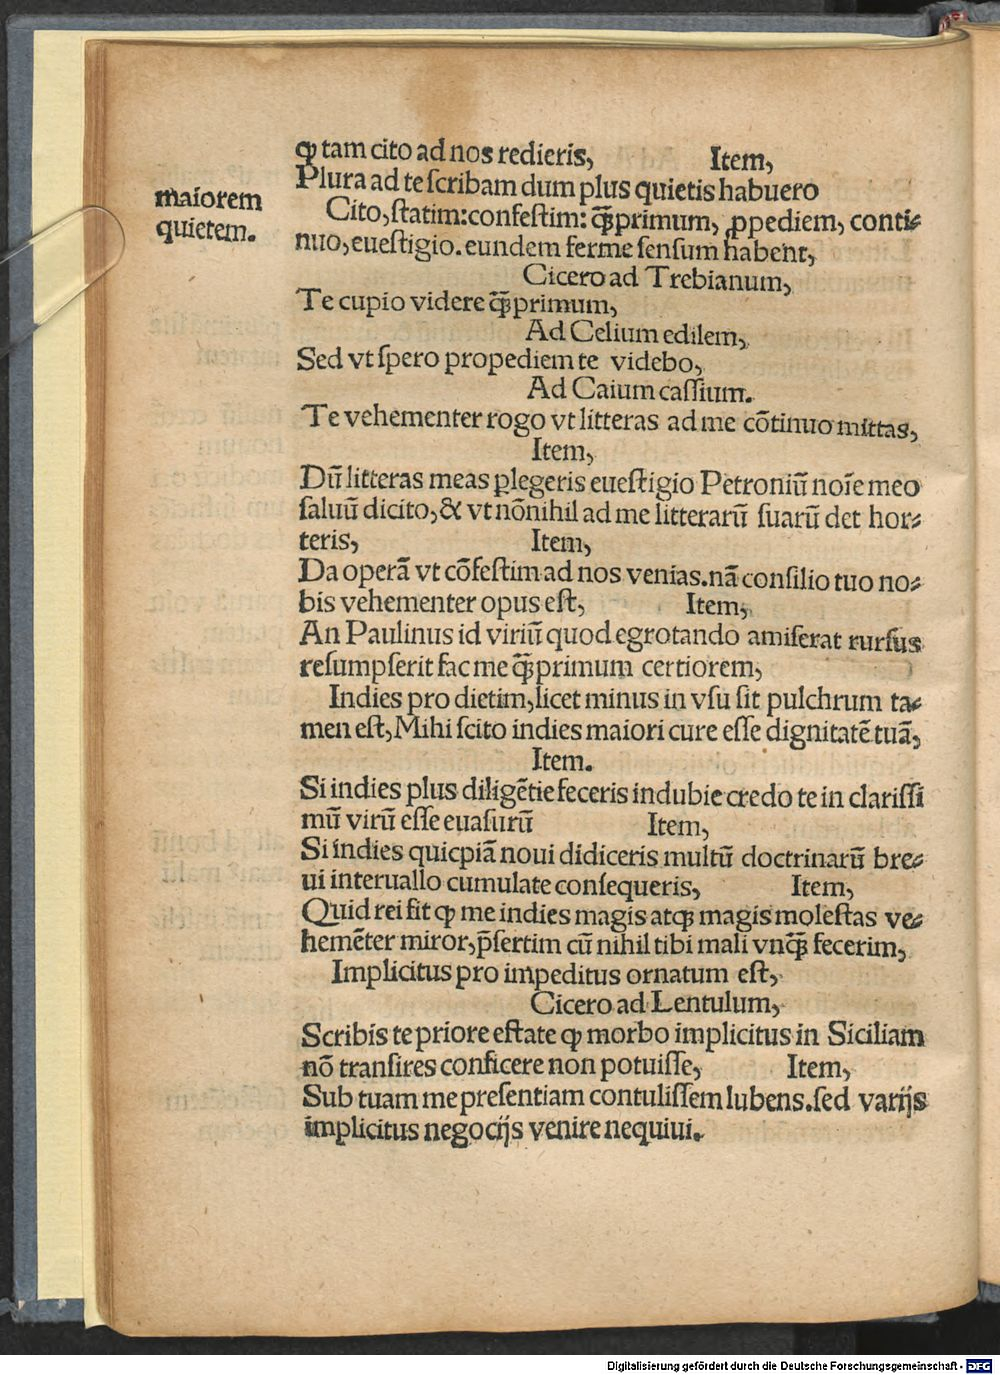 ꝙ tam cito ad nos redieris, Item,
Plura ad te ſcribam dum plus quietis habuero
maiorem
quietem.
Cito, ſtatim: confeſtim: q̃ꝫprimum, ꝓpediem, conti⸗
nuo, eueſtigio. eundem ferme ſenſum habent,
Cicero ad Trebianum,
Te cupio videre q̃ꝫprimum,
Ad Celium edilem,
Sed vt ſpero propediem te videbo,
Ad Caium caſſium.
Te vehementer rogo vt litteras ad me cõtinuo mittas,
Item,
Dũ litteras meas ꝑlegeris eueſtigio Petroniũ noĩe meo
ſaluũ dicito, & vt nõnihil ad me litterarũ ſuarũ det hor⸗
teris, Item,
Da operã vt cõfeſtim ad nos venias. nã conſilio tuo no⸗
bis vehementer opus eſt, Item,
An Paulinus id viriũ quod egrotando amiſerat rurſus
reſumpſerit fac me q̃ꝫprimum certiorem,
Indies pro dietim, licet minus in vſu ſit pulchrum ta⸗
men eſt, Mihi ſcito indies maiori cure eſſe dignitatẽ tuã,
Item.
Si indies plus diligẽtie feceris indubie credo te in clariſſi
mũ virũ eſſe euaſurũ Item,
Si indies quicpiã noui didiceris multũ doctrinarũ bre⸗
ui interuallo cumulate conſequeris, Item,
Quid rei fit ꝙ me indies magis atqꝫ magis moleſtas ve⸗
hemẽter miror, p̃ſertim cũ nihil tibi mali vnq̃ꝫ fecerim,
Implicitus pro impeditus ornatum eſt,
Cicero ad Lentulum,
Scribis te priore eſtate ꝙ morbo implicitus in Siciliam
nõ tranſires conficere non potuiſſe, Item,
Sub tuam me preſentiam contuliſſem lubens. ſed varijs
implicitus negocijs venire nequiui.
Digitalisierung gefördert durch die Deutsche Forschungsgemeinschaft - DFG